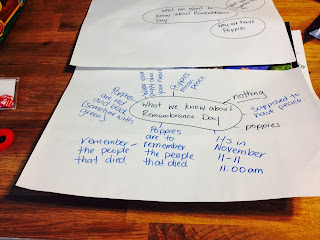 What we want to
know about Remembrance
Day
Why we have
Poppies
What we know about
Remembrance Day
Poppies
are red
and black
(sometimes with
green)
keep your
poppy near
your heart
Poppies
mean
peace
nothing
supposed to
have peace
poppies
Its in
November
11-11
11:00am
Poppies
are to
remember
the people
that died.
remember
the people
that died.